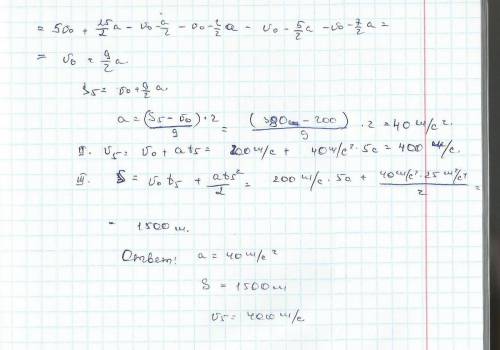 = 5υ₀ + 25/2 a - υ₀ - a/2 - υ₀ - 2/2 a - υ₀ - 5/2 a - υ₀ - 7/2 a =
= υ₀ + 9/2 a.
S₅ = υ₀ + 9/2 a
a = (S₅ - υ₀) · 2 / 9 = (380м - 200) / 9 · 2 = 40 м/с².
II. υ₅ = υ₀ + at₅ = 200 м/с + 40 м/с² · 5с = 400 м/с.
III. S = υ₀t₅ + at₅²/2 = 200 м/с · 5с + 40 м/с² · 25 м²/с² / 2 =
= 1500 м.
Ответ: a = 40 м/с²
S = 1500 м
υ₅ = 400 м/с